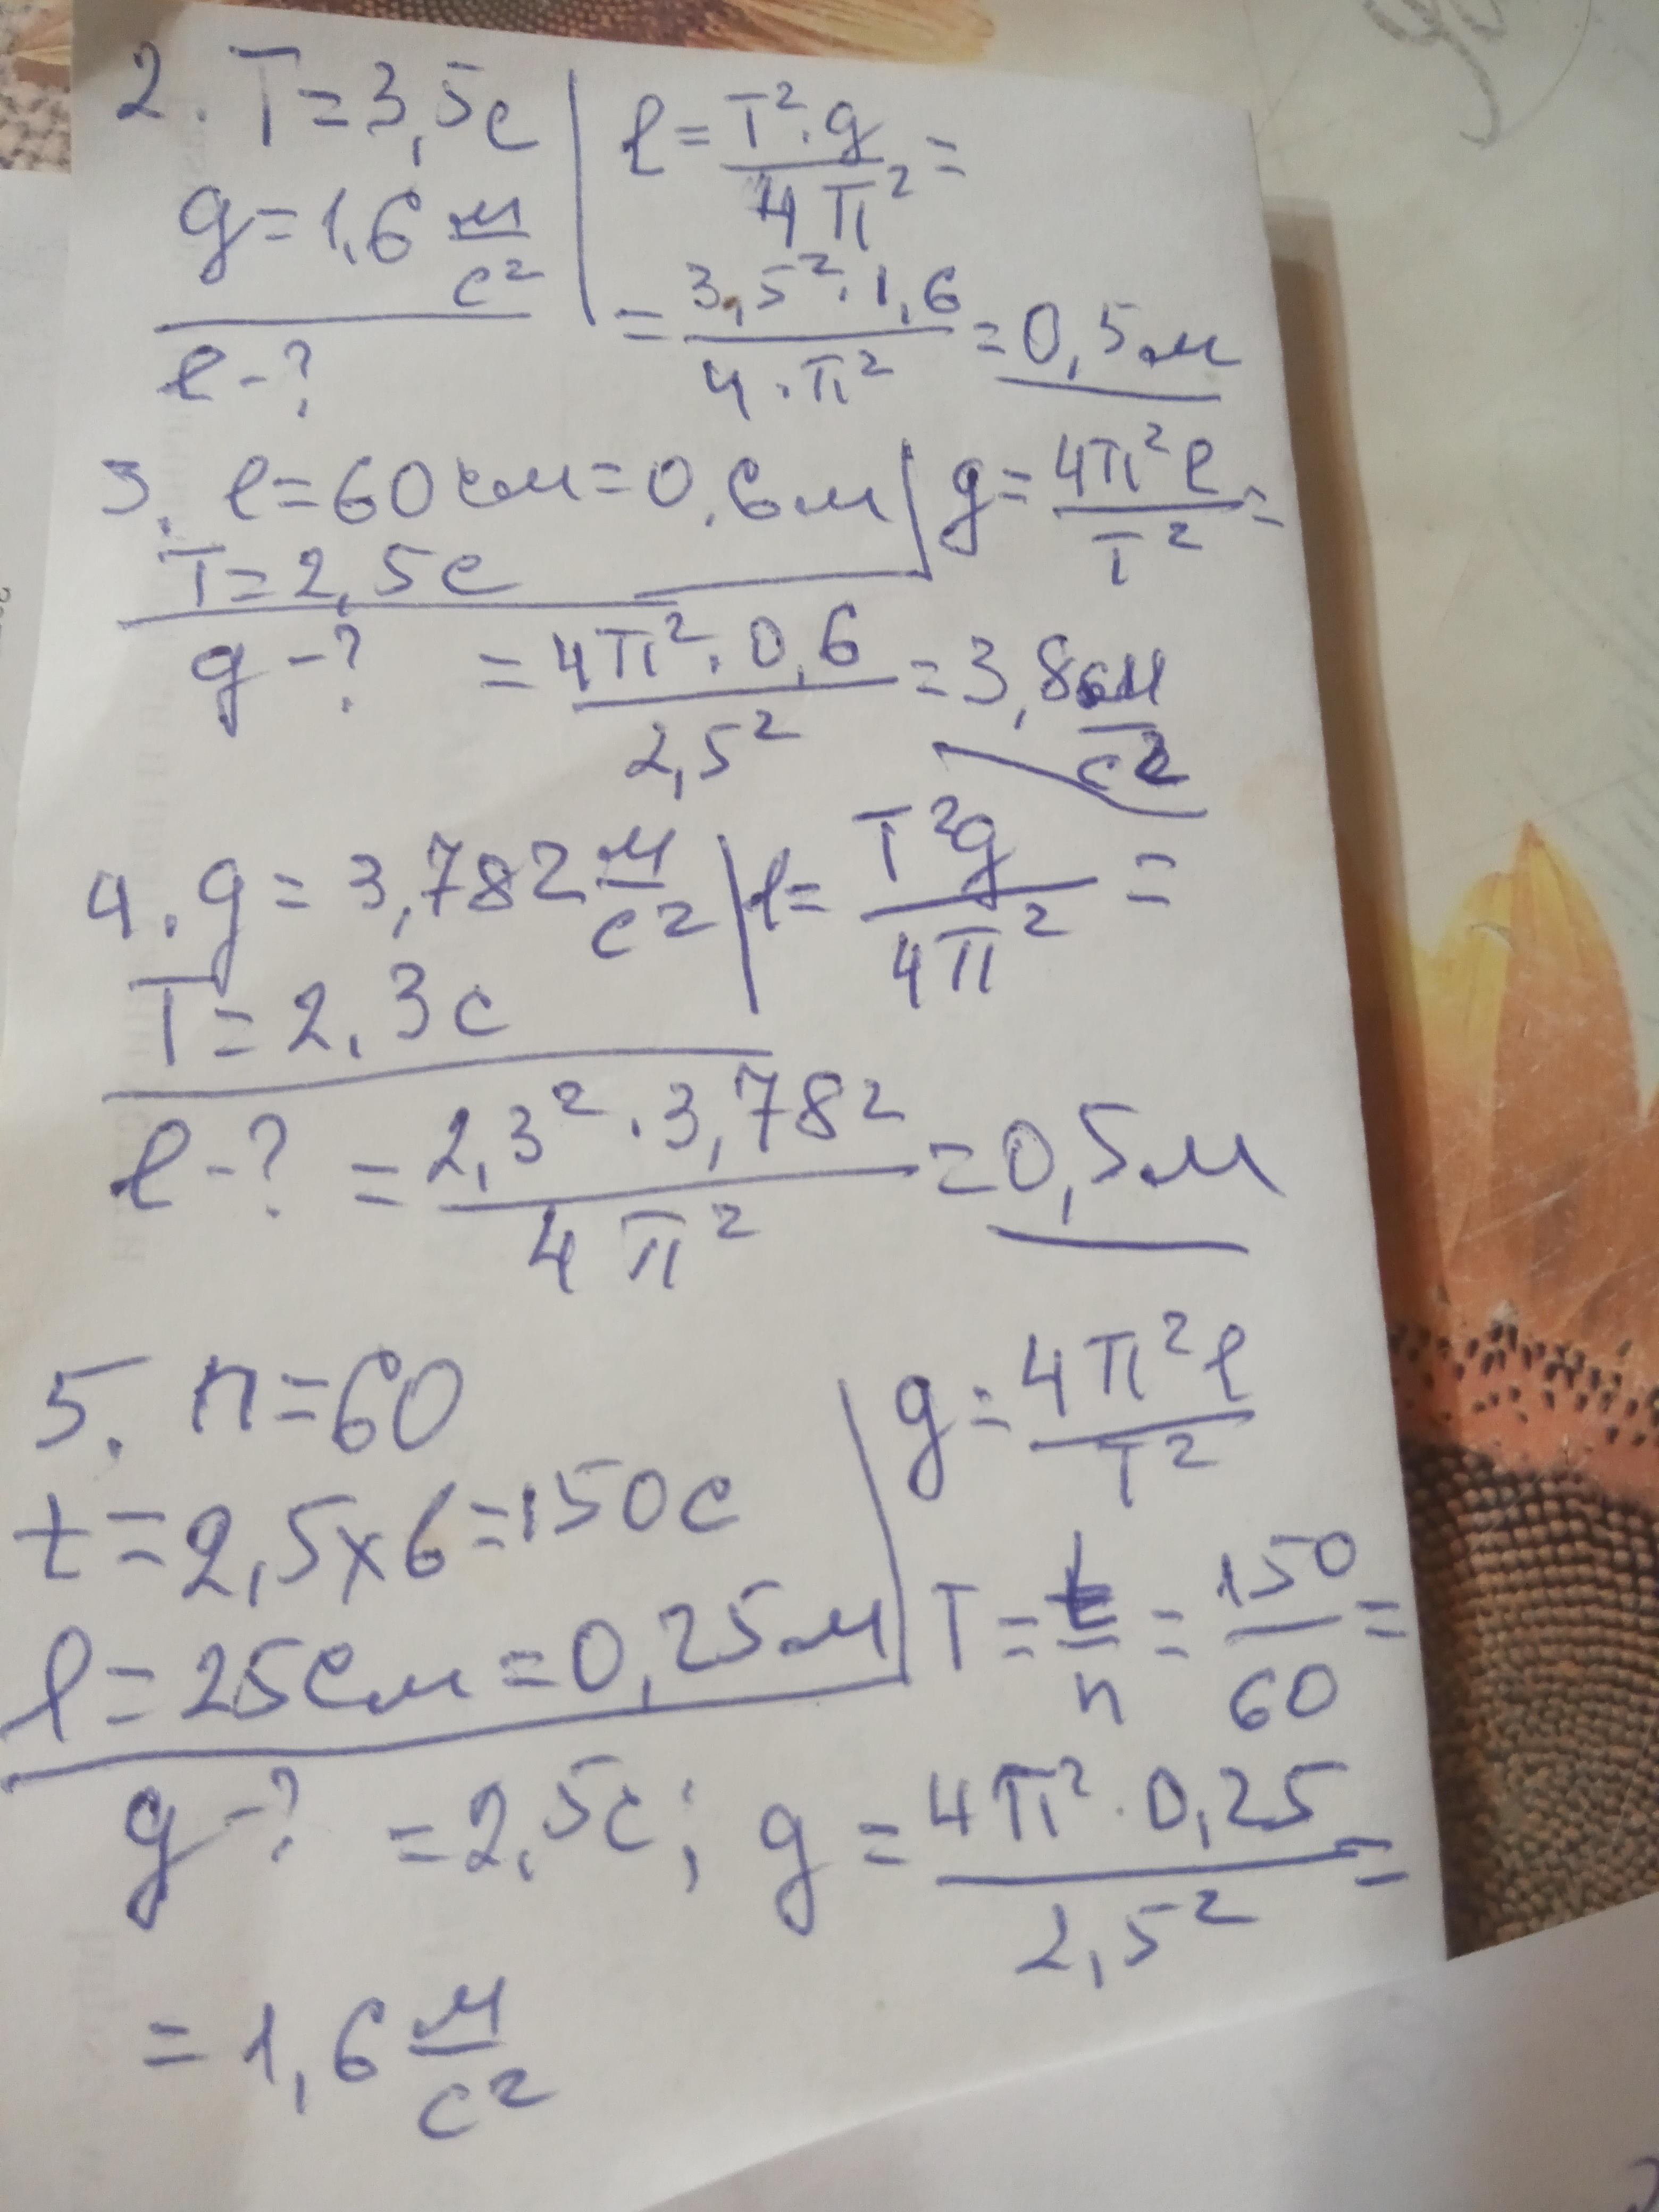 2. T=3,5c
g=1,6 м/c²
l-?
l= T²·g / 4π² =
= 3,5²·1,6 / 4·π² =0,5м
3. l=60см=0,6м
T=2,5c
g-?
g= 4π²l / T² =
= 4π²·0,6 / 2,5² =3,8 м/c²
4. g=3,782 м/c²
T=2,3c
l-?
l= T²g / 4π² =
= 2,3²·3,782 / 4π² =0,5м
5. n=60
t=2,5x6=150c
l=25см=0,25м
g-?
g= 4π²l / T²
T= t/n = 150/60 =
=2,5c; g= 4π²·0,25 / 2,5² =
=1,6 м/c²